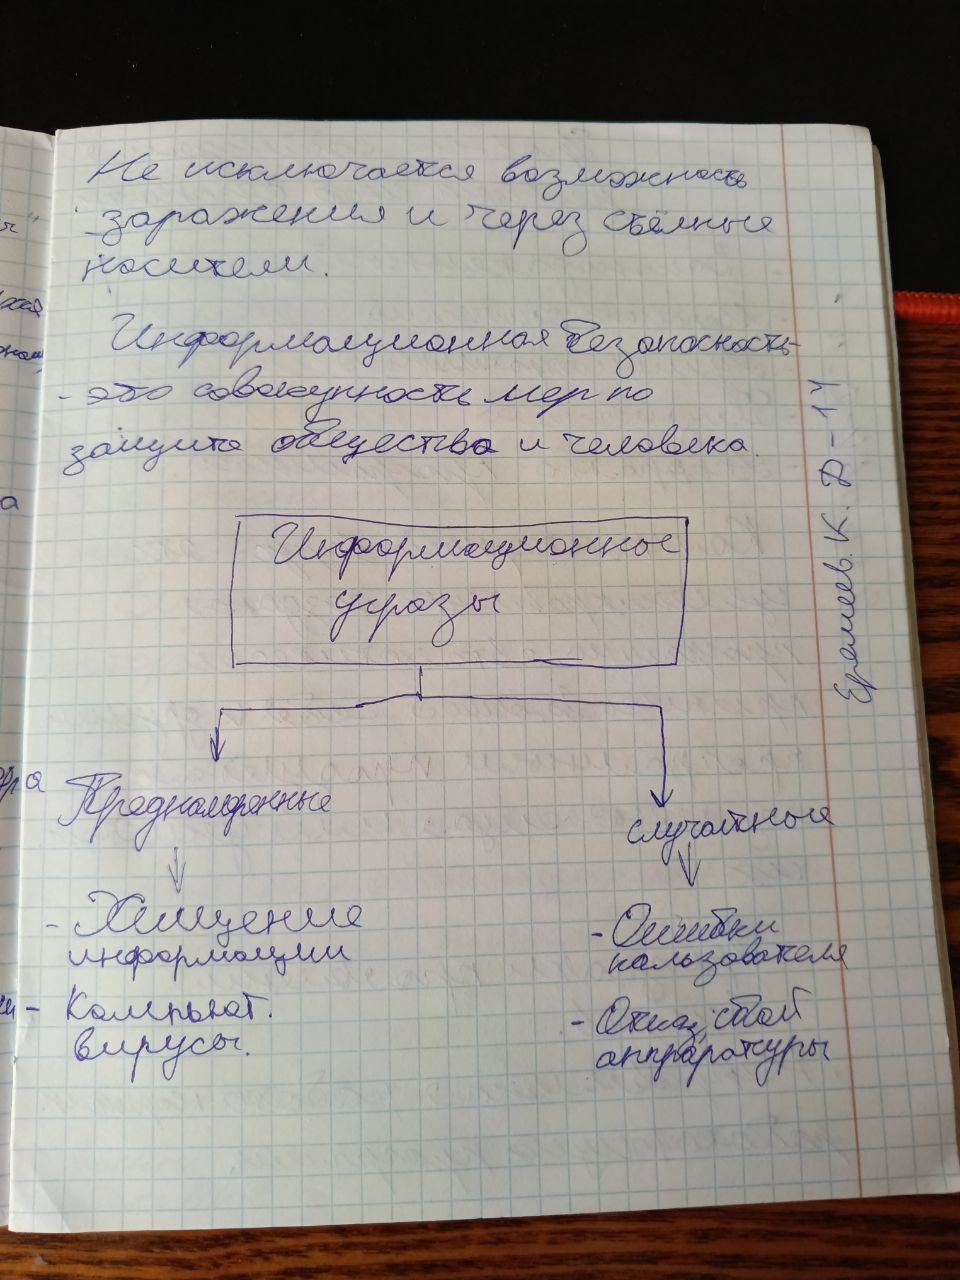 Не исключается возможность
заражения и через съёмные
носители.
Информационная безопасность-
- это совокупность мер по
защите общества и человека.
Информационные
угрозы
Преднамеренные
случайные
- Хищение
информации
- Компьют.
вирусы.
- Ошибки
пользователя
- Отказ, сбой
аппаратуры
Еремеев. К. Д-14